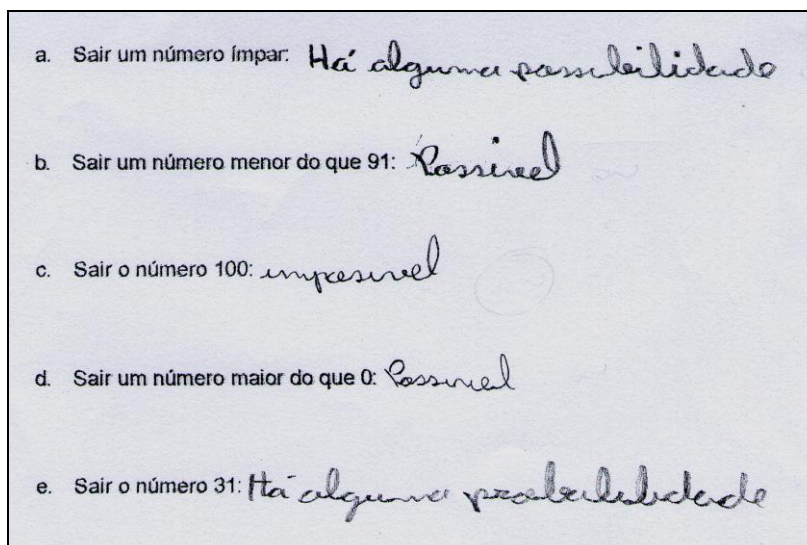 a. Sair um número ímpar: Há alguma possibilidade
b. Sair um número menor do que 91: Possivel
c. Sair o número 100: impossivel
d. Sair um número maior do que 0: Possivel
e. Sair o número 31: Há alguma probabilidade